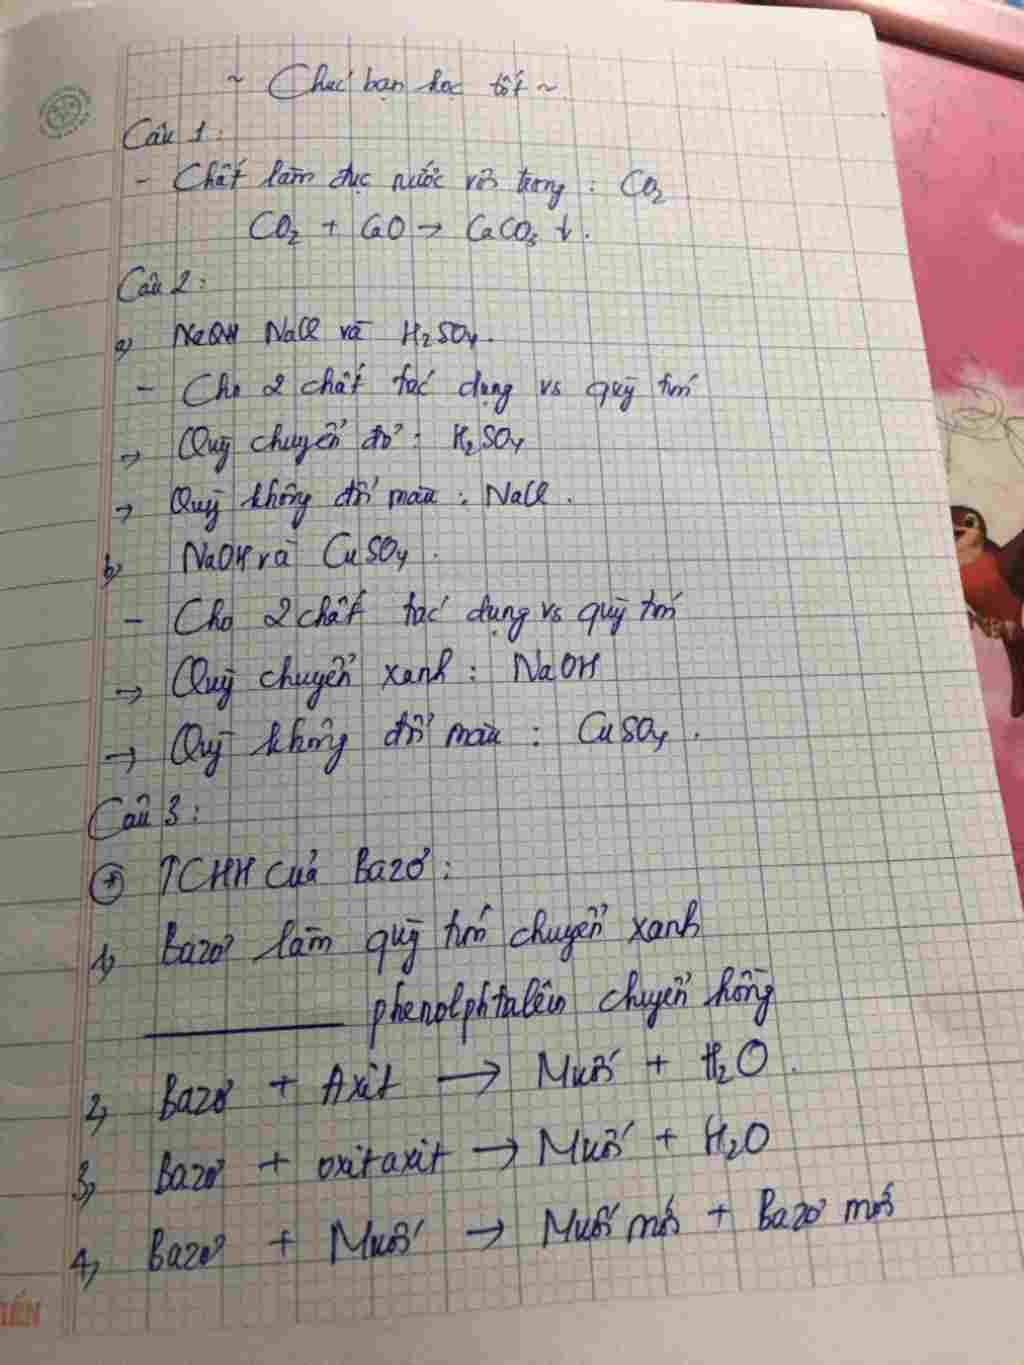 ~ Chúc bạn học tốt ~
Câu 1:
- Chất làm đục nước vôi trong : CO2
CO2 + CaO → CaCO3 ↓.
Câu 2:
a) NaOH NaCl và H2SO4.
- Cho 2 chất tác dụng vs quỳ tím
→ Quỳ chuyển đỏ : H2SO4
→ Quỳ không đổi màu : NaCl.
b) NaOH và CuSO4.
- Cho 2 chất tác dụng vs quỳ tím
→ Quỳ chuyển xanh : NaOH
→ Quỳ không đổi màu : CuSO4.
Câu 3:
* TCHH của Bazơ :
1) Bazơ làm quỳ tím chuyển xanh
phenolphtalêin chuyển hồng
2) Bazơ + Axit → Muối + H2O.
3) Bazơ + oxitaxit → Muối + H2O
4) Bazơ + Muối → Muối mới + Bazơ mới